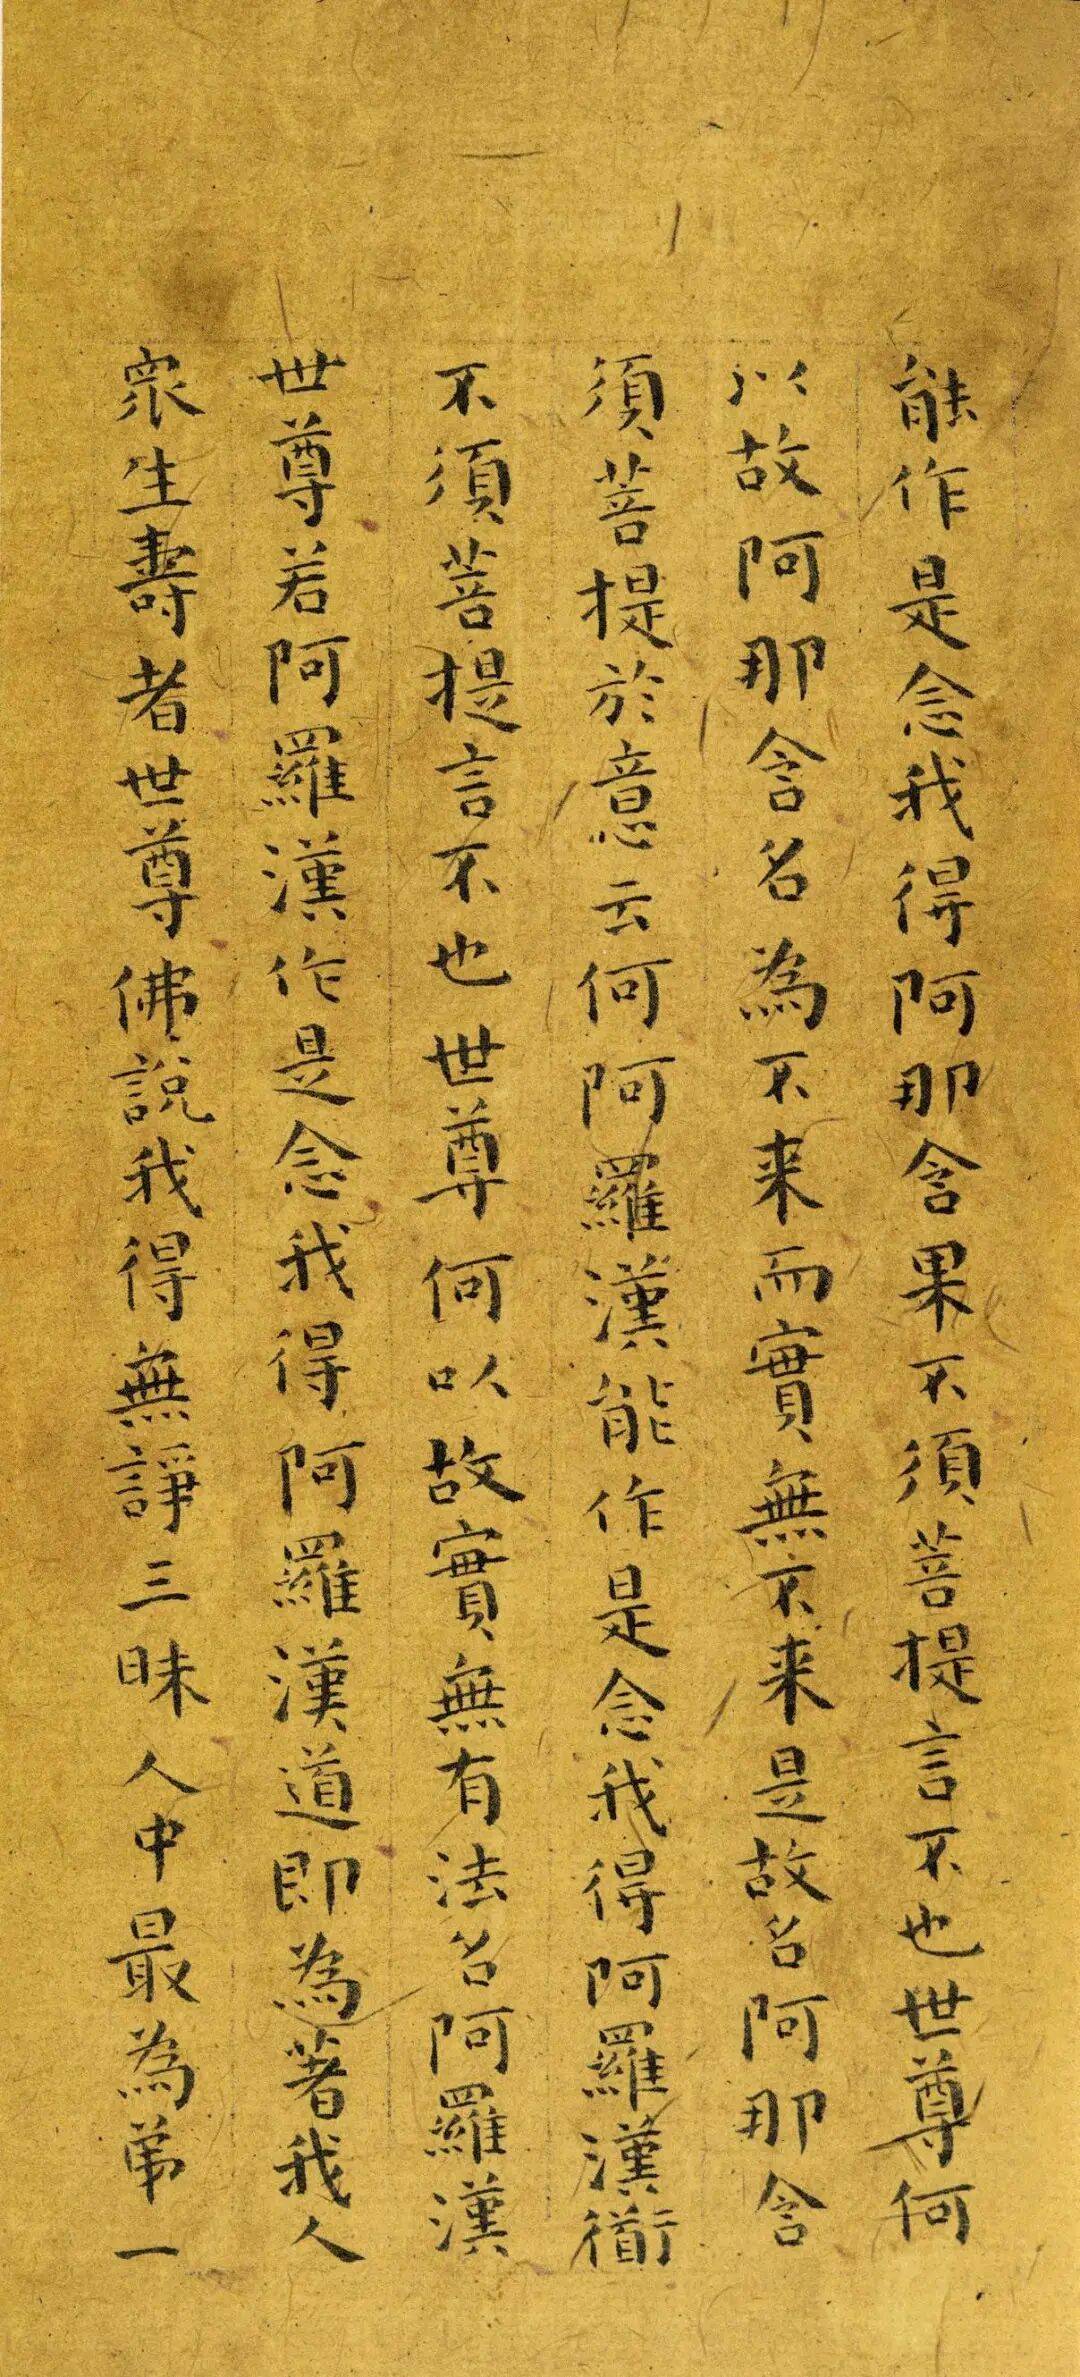 能作是念我得阿那含果不須菩提言不也世尊何
以故阿那含名為不来而實無不来是故名阿那含
須菩提於意云何阿羅漢能作是念我得阿羅漢衜
不須菩提言不也世尊何以故實無有法名阿羅漢
世尊若阿羅漢作是念我得阿羅漢道即為著我人
衆生壽者世尊佛說我得無諍三昧人中最為弟一